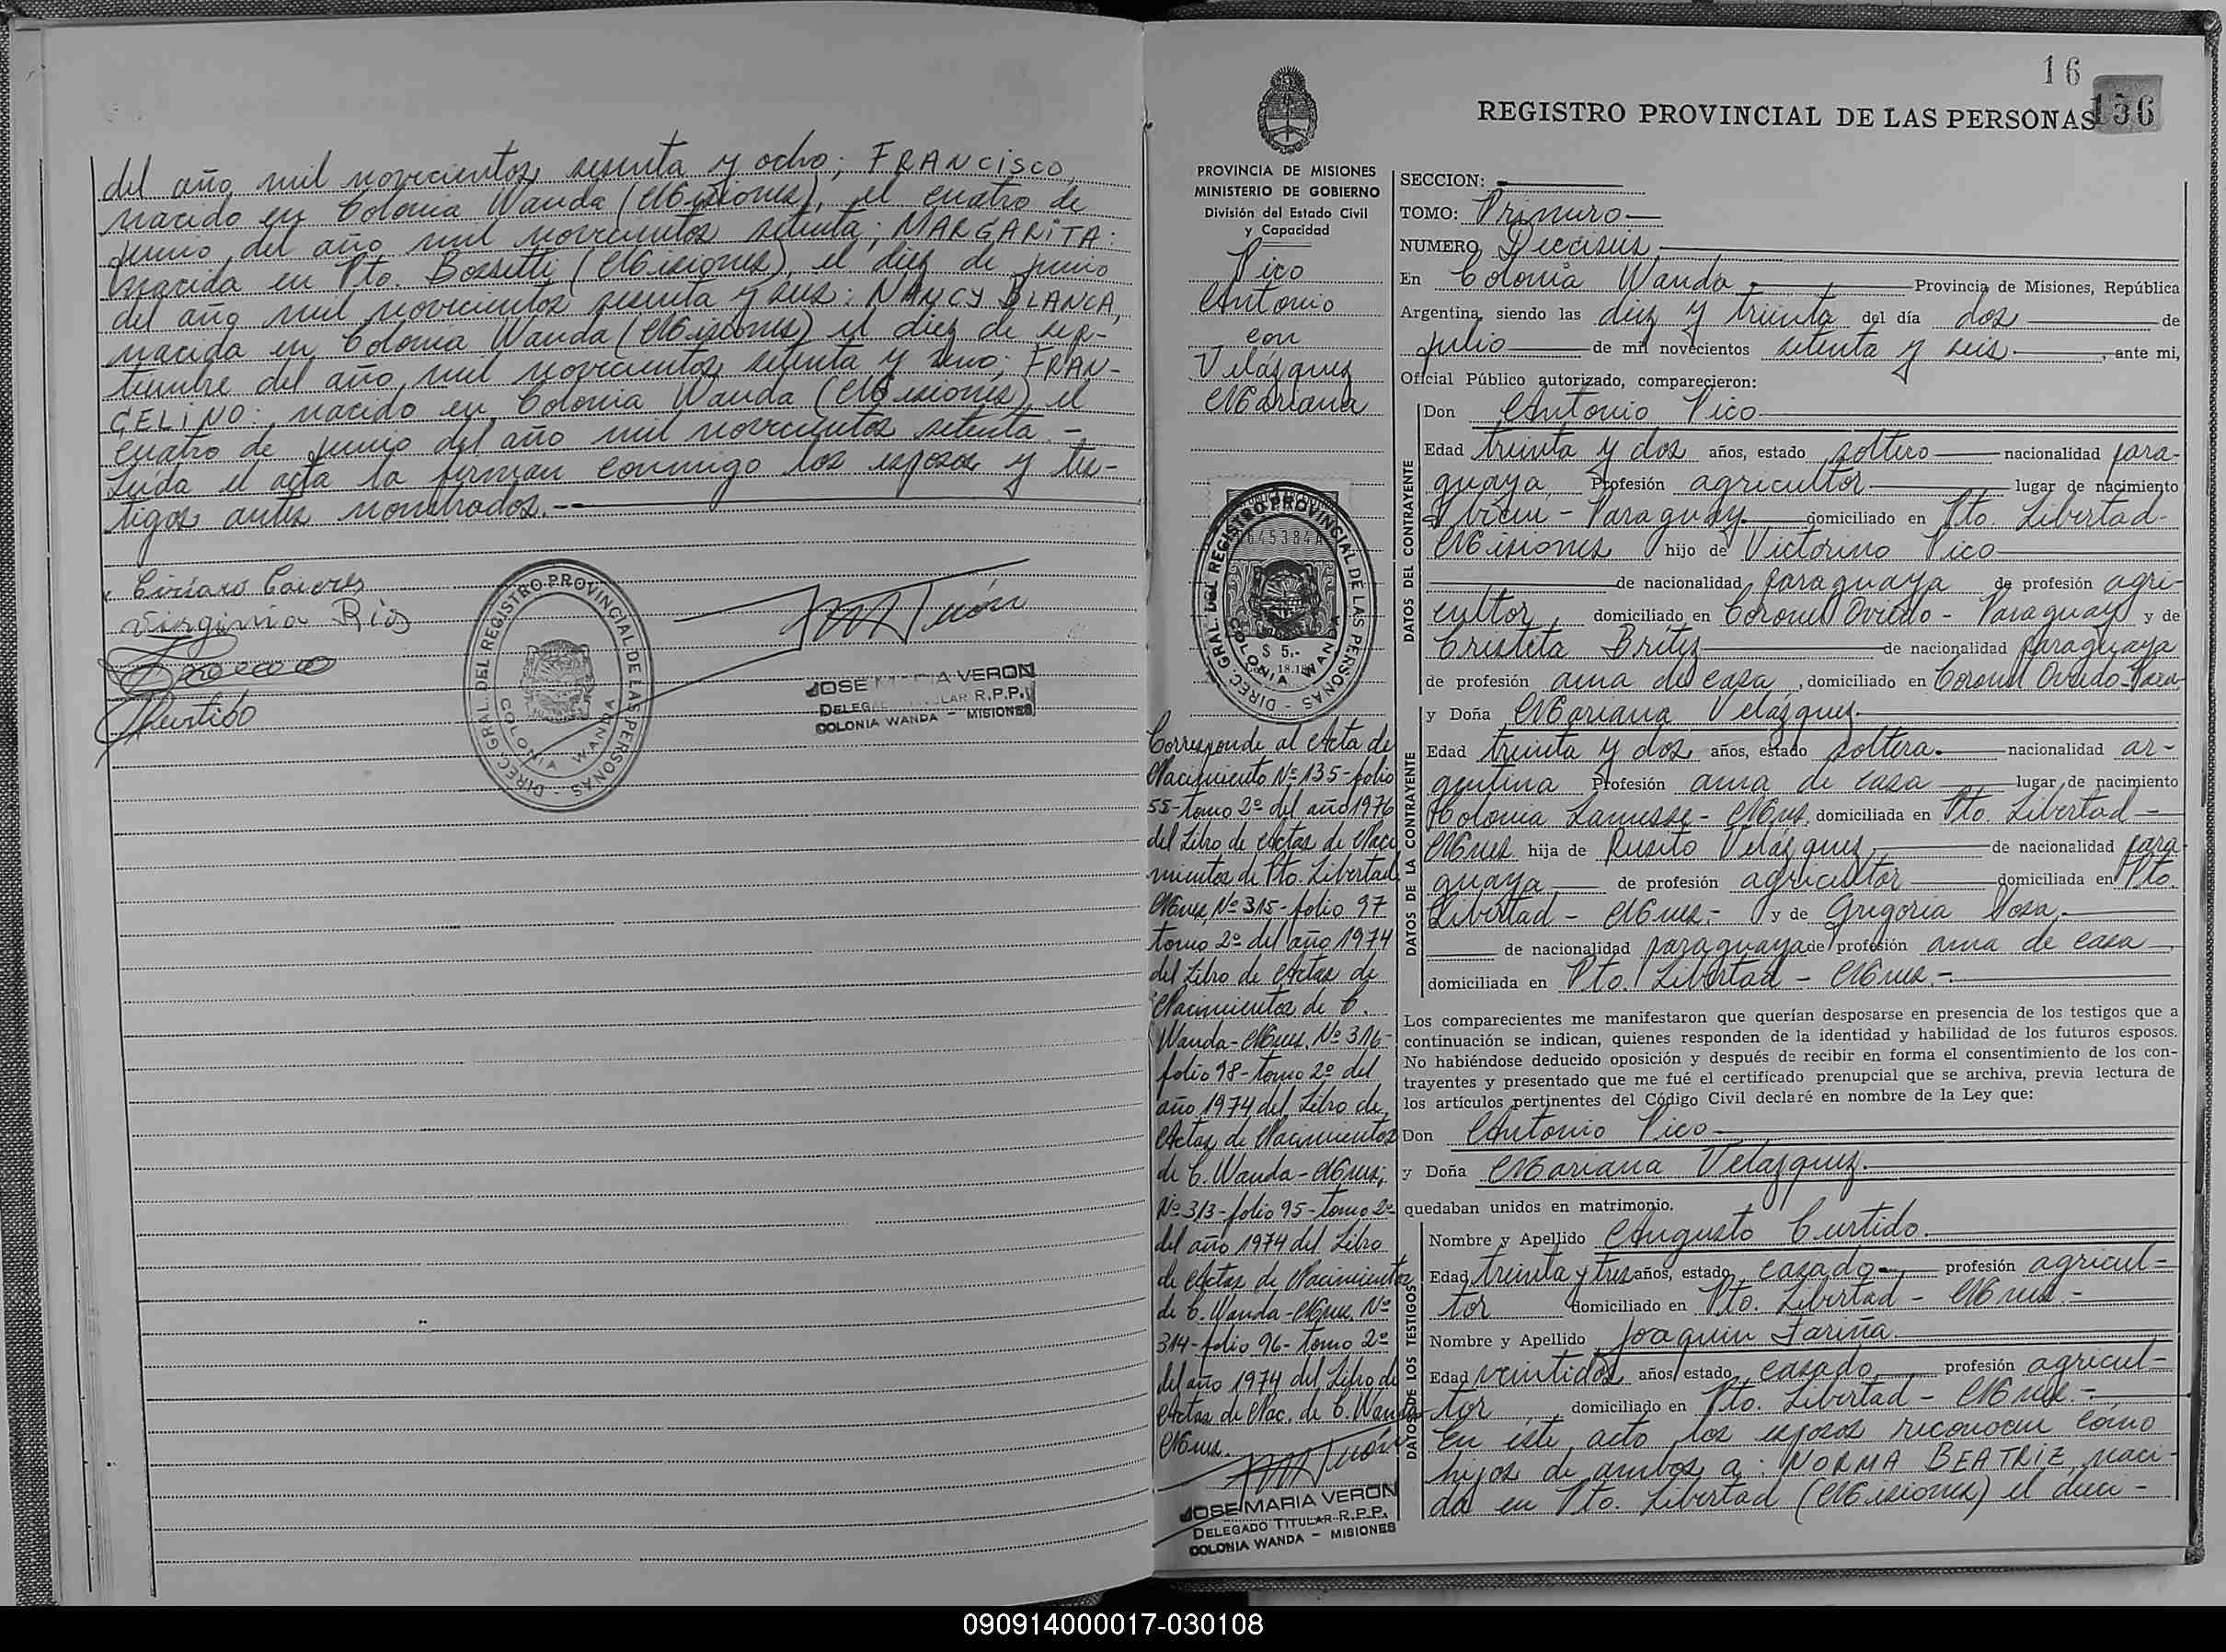 del año mil novecientos sesenta y ocho; FRANCISCO,
nacido en Colonia Wanda (Misiones), el cuatro de
junio del año mil novecientos setenta; MARGARITA:
nacida en Pto. Bossetti (Misiones), el diez de junio
del año mil novecientos sesenta y seis; NANCY BLANCA,
nacida en Colonia Wanda (Misiones) el diez de sep-
tiembre del año mil novecientos setenta y uno; FRAN-
CELINO: nacido en Colonia Wanda (Misiones) el
cuatro de junio del año mil novecientos setenta.-
Leída el acta la firman conmigo los esposos y tes-
tigos antes nombrados.--
Virginia Rios
DIREC. GRAL. DEL REGISTRO PROVINCIAL DE LAS PERSONAS
COLONIA WANDA
JOSE MARIA VERON
DELEGADO TITULAR R.P.P.
COLONIA WANDA - MISIONES
16
136
REGISTRO PROVINCIAL DE LAS PERSONAS
PROVINCIA DE MISIONES
MINISTERIO DE GOBIERNO
División del Estado Civil
y Capacidad
Pico
Antonio
con
Velázquez
Mariana
DIREC. GRAL. DEL REGISTRO PROVINCIAL DE LAS PERSONAS
COLONIA WANDA
$ 5.-
Corresponde al Acta de
Nacimiento Nº 135-folio
55-tomo 2º del año 1976
del Libro de Actas de Naci
mientos de Pto. Libertad
Mnes, Nº 315-folio 97
tomo 2º del año 1974
del Libro de Actas de
Nacimientos de C.
Wanda-Mnes. Nº 316-
folio 98-tomo 2º del
año 1974 del Libro de
Actas de Nacimientos
de C. Wanda-Mnes;
Nº 313-folio 95-tomo 2º
del año 1974 del Libro
de Actas de Nacimientos
de C. Wanda-Mnes. Nº
314-folio 96-tomo 2º
del año 1974 del Libro de
Actas de Nac. de C. Wanda
Mnes.
JOSE MARIA VERON
DELEGADO TITULAR R.P.P.
COLONIA WANDA - MISIONES
SECCION:
TOMO: Primero
NUMERO Dieciseis
En Colonia Wanda Provincia de Misiones, República
Argentina, siendo las diez y treinta del día dos de
julio de mil novecientos setenta y seis, ante mi,
Oficial Público autorizado, comparecieron:
DATOS DEL CONTRAYENTE
Don Antonio Pico
Edad treinta y dos años, estado soltero nacionalidad para-
guaya, Profesión agricultor lugar de nacimiento
Ibicui - Paraguay domiciliado en Pto. Libertad-
Misiones hijo de Victorino Pico
de nacionalidad paraguaya de profesión agri-
cultor, domiciliado en Coronel Oviedo - Paraguay y de
Cristeta Britez de nacionalidad paraguaya
de profesión ama de casa, domiciliado en Coronel Oviedo-Para.
DATOS DE LA CONTRAYENTE
y Doña Mariana Velázquez
Edad treinta y dos años, estado soltera.- nacionalidad ar-
gentina Profesión ama de casa lugar de nacimiento
Colonia Lanusse-Mnes. domiciliada en Pto. Libertad-
Mnes. hija de Rusito Velázquez de nacionalidad para
guaya, de profesión agricultor domiciliada en Pto.
Libertad - Mnes.- y de Gregoria Sosa,
de nacionalidad paraguaya de profesión ama de casa,
domiciliada en Pto. Libertad - Mnes.-
Los comparecientes me manifestaron que querían desposarse en presencia de los testigos que a
continuación se indican, quienes responden de la identidad y habilidad de los futuros esposos.
No habiéndose deducido oposición y después de recibir en forma el consentimiento de los con-
trayentes y presentado que me fué el certificado prenupcial que se archiva, previa lectura de
los artículos pertinentes del Código Civil declaré en nombre de la Ley que:
Don Antonio Pico
y Doña Mariana Velazquez.
quedaban unidos en matrimonio.
DATOS DE LOS TESTIGOS
Nombre y Apellido Augusto Curtido
Edad treinta y tres años, estado casado profesión agricul-
tor domiciliado en Pto. Libertad - Mnes.-
Nombre y Apellido Joaquin Fariña
Edad veintidos años, estado casado, profesión agricul-
tor domiciliado en Pto. Libertad - Mnes.-
En éste acto los esposos reconocen como
hijos de ambos a: NORMA BEATRIZ, naci-
da en Pto. Libertad (Misiones) el dieci-
090914000017-030108